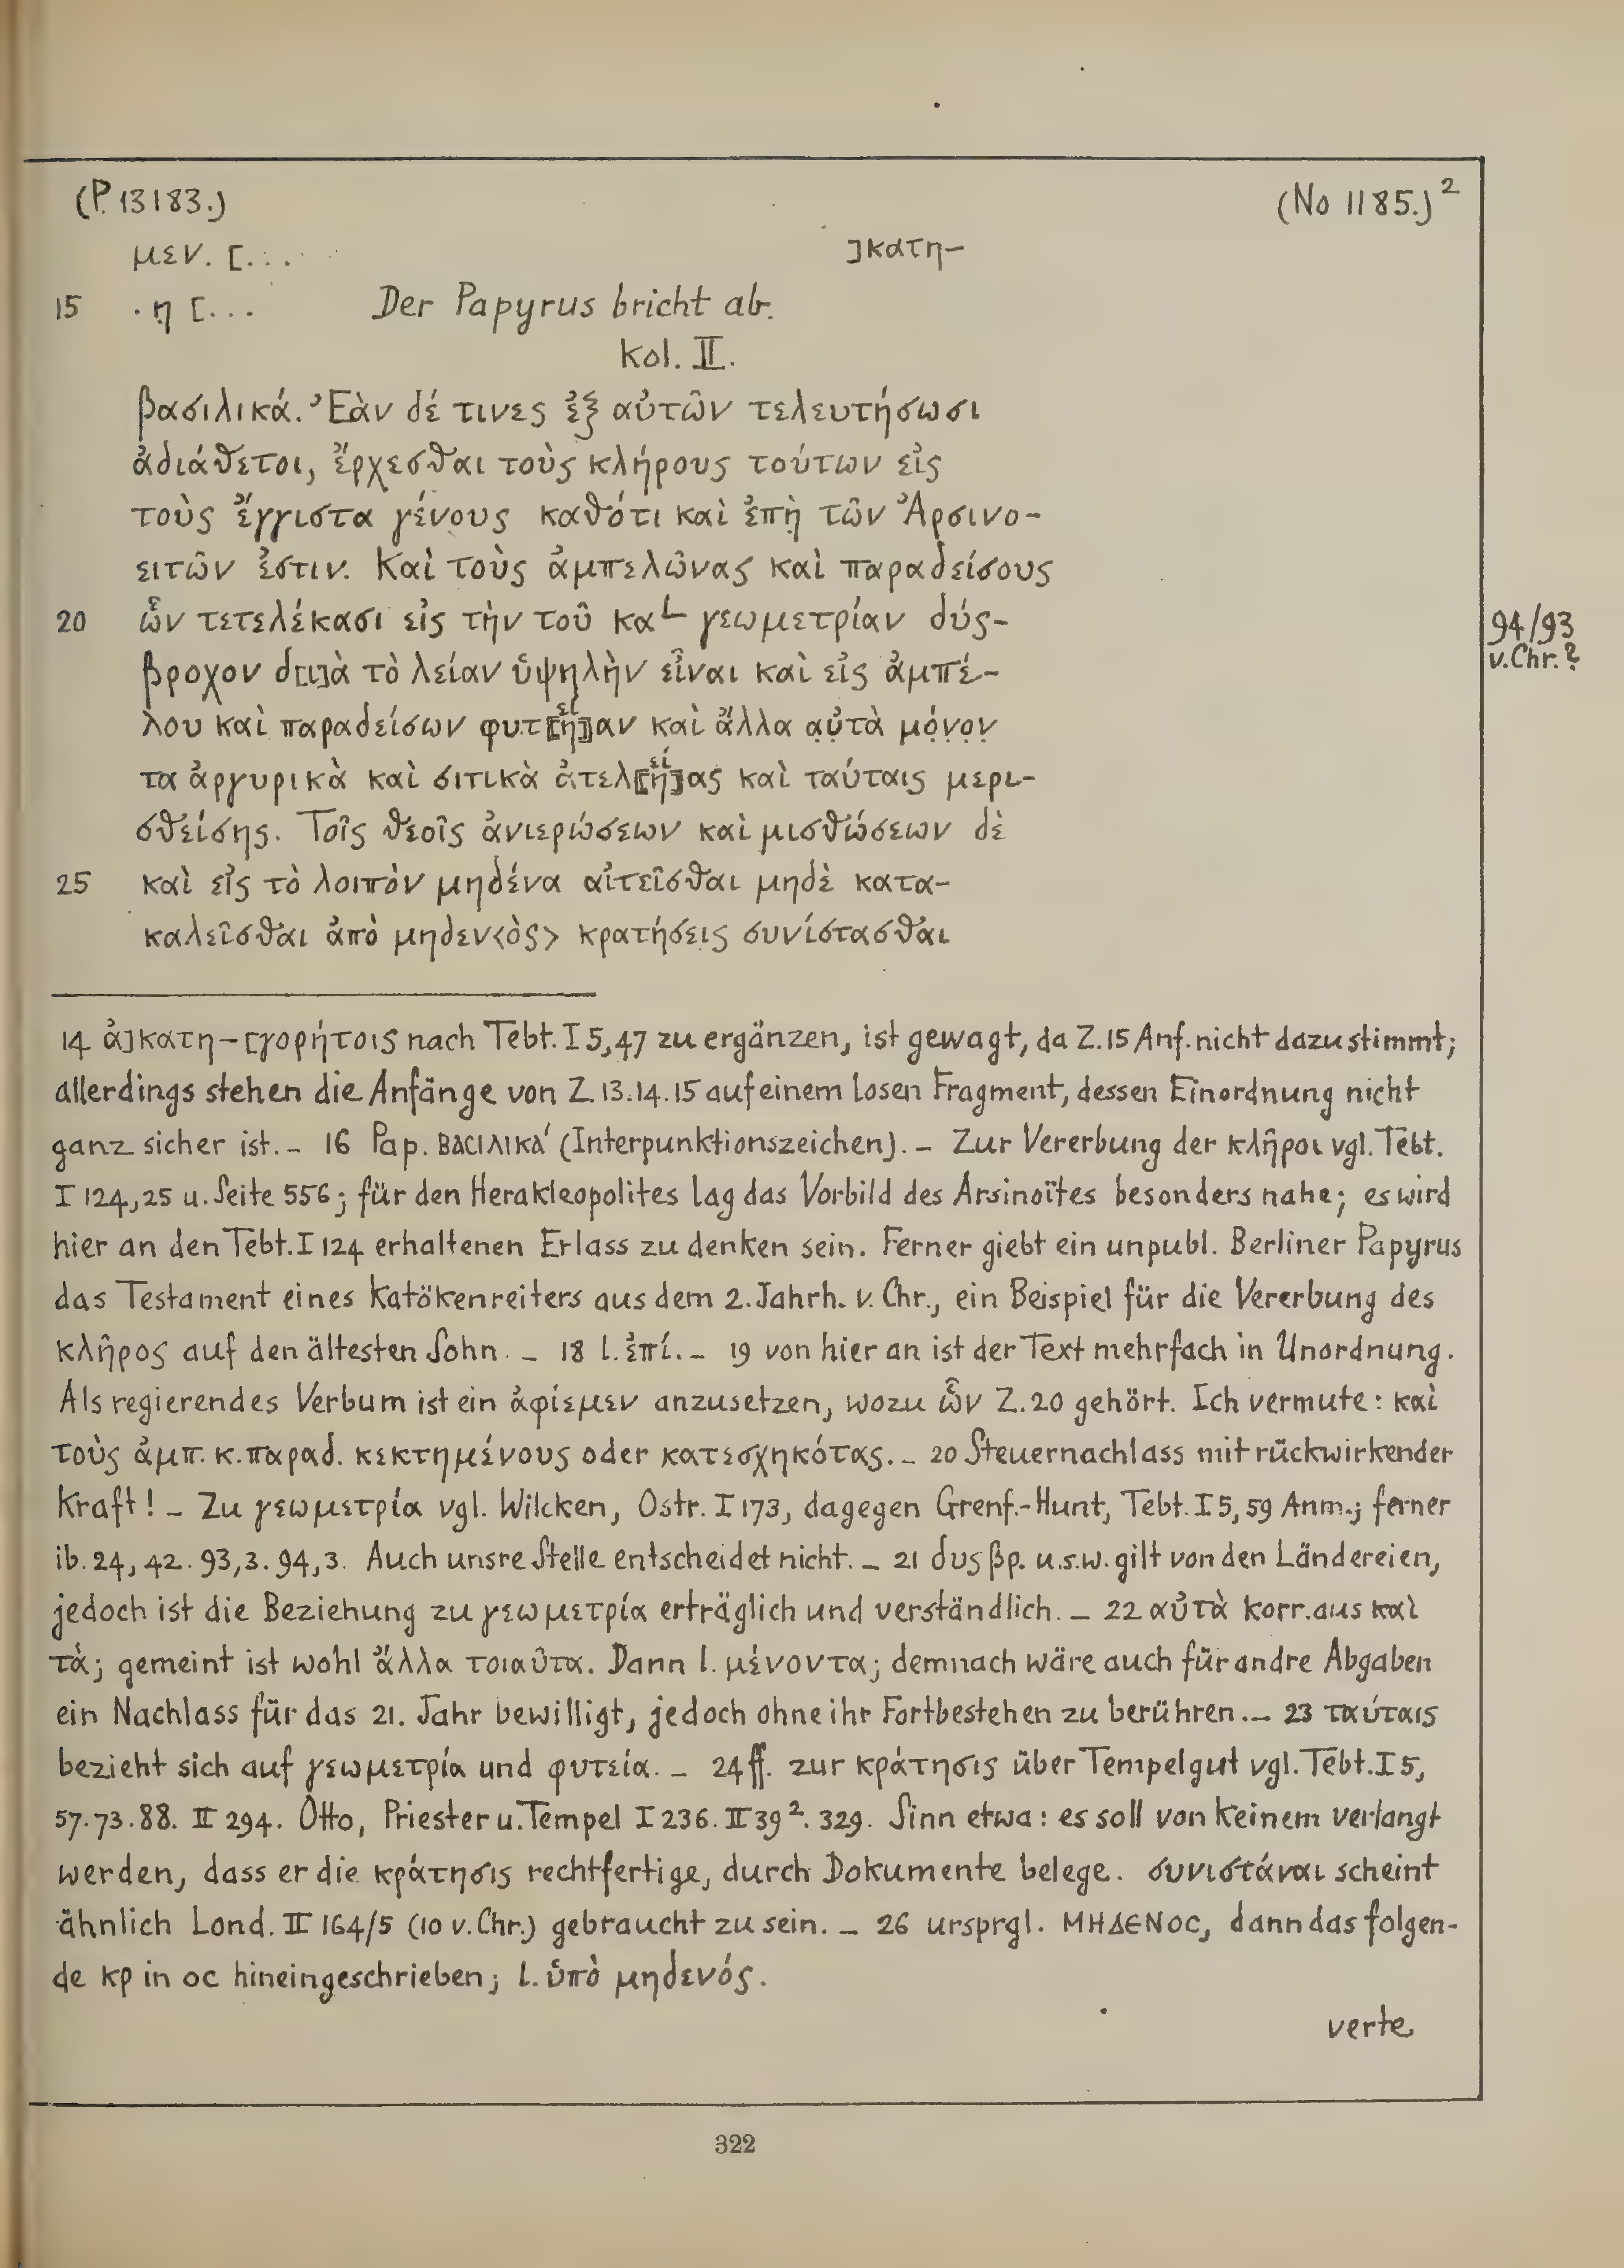 (P. 13183.) (No 1185.)²
μεν. [... ]κατη–
15 .η [... Der Papyrus bricht ab.
Kol. II.
βασιλικά. Ἐὰν δέ τινες ἐξ αὐτῶν τελευτήσωσι
ἀδιάθετοι, ἔρχεσθαι τοὺς κλήρους τούτων εἰς
τοὺς ἔγγιστα γένους καθότι καὶ ἐπὴ̣ τῶν Ἀρσινο–
ειτῶν ἐστιν. Καὶ τοὺς ἀμπελῶνας καὶ παραδείσους
20 ὧν τετελέκασι εἰς τὴν τοῦ κα∟ γεωμετρίαν δύς– 94/93
βροχον δ[ι]ὰ τὸ λείαν ὑψηλὴν εἶναι καὶ εἰς ἀμπέ– v. Chr.?
λου καὶ παραδείσων φυτ⟦ή⟧είαν καὶ ἄλλα α̣ὐ̣τὰ μό̣ν̣ο̣ν̣
τα ἀργυρικὰ καὶ σιτικὰ ἀτελ⟦ή⟧είας καὶ ταύταις μερι–
σθείσης. Τοῖς θεοῖς ἀνιερώσεων καὶ μισθώσεων δὲ
25 καὶ εἰς τὸ λοιπὸν μηδένα αἰτεῖσθαι μηδὲ κατα–
καλεῖσθαι ἀπὸ μηδεν<ὸς> κρατήσεις συνίστασθαι
14 ἀ]κατη–[γορήτοις nach Tebt. I 5,47 zu ergänzen, ist gewagt, da Z. 15 Anf. nicht dazu stimmt;
allerdings stehen die Anfänge von Z. 13. 14. 15 auf einem losen Fragment, dessen Einordnung nicht
ganz sicher ist. – 16 Pap. ΒΑCΙΛΙΚΑ´ (Interpunktionszeichen). – Zur Vererbung der κλῆροι vgl. Tebt.
I 124,25 u. Seite 556; für den Herakleopolites lag das Vorbild des Arsinoïtes besonders nahe; es wird
hier an den Tebt. I 124 erhaltenen Erlass zu denken sein. Ferner giebt ein unpubl. Berliner Papyrus
das Testament eines Katökenreiters aus dem 2. Jahrh. v. Chr., ein Beispiel für die Vererbung des
κλῆρος auf den ältesten Sohn. – 18 l. ἐπί. – 19 von hier an ist der Text mehrfach in Unordnung.
Als regierendes Verbum ist ein ἀφίεμεν anzusetzen, wozu ὧν Z. 20 gehört. Ich vermute: καὶ
τοὺς ἀμπ. κ. παραδ. κεκτημένους oder κατεσχηκότας. – 20 Steuernachlass mit rückwirkender
Kraft! – Zu γεωμετρία vgl. Wilcken, Ostr. I 173, dagegen Grenf.-Hunt, Tebt. I 5, 59 Anm.; ferner
ib. 24, 42. 93, 3. 94, 3. Auch unsre Stelle entscheidet nicht. – 21 δυςβρ. u.s.w. gilt von den Ländereien,
jedoch ist die Beziehung zu γεωμετρία erträglich und verständlich. – 22 αὐτὰ korr. aus καὶ
τὰ; gemeint ist wohl ἄλλα τοιαῦτα. Dann l. μένοντα; demnach wäre auch für andre Abgaben
ein Nachlass für das 21. Jahr bewilligt, jedoch ohne ihr Fortbestehen zu berühren. – 23 ταύταις
bezieht sich auf γεωμετρία und φυτεία. – 24 ff. zur κράτησις über Tempelgut vgl. Tebt. I 5,
57. 73. 88. II 294. Otto, Priester u. Tempel I 236. II 39². 329. Sinn etwa: es soll von keinem verlangt
werden, dass er die κράτησις rechtfertige, durch Dokumente belege. συνιστάναι scheint
ähnlich Lond. II 164/5 (10 v. Chr.) gebraucht zu sein. – 26 ursprgl. ΜΗΔΕΝΟC, dann das folgen-
de κρ in οc hineingeschrieben; l. ὑπὸ μηδενός.
verte
322